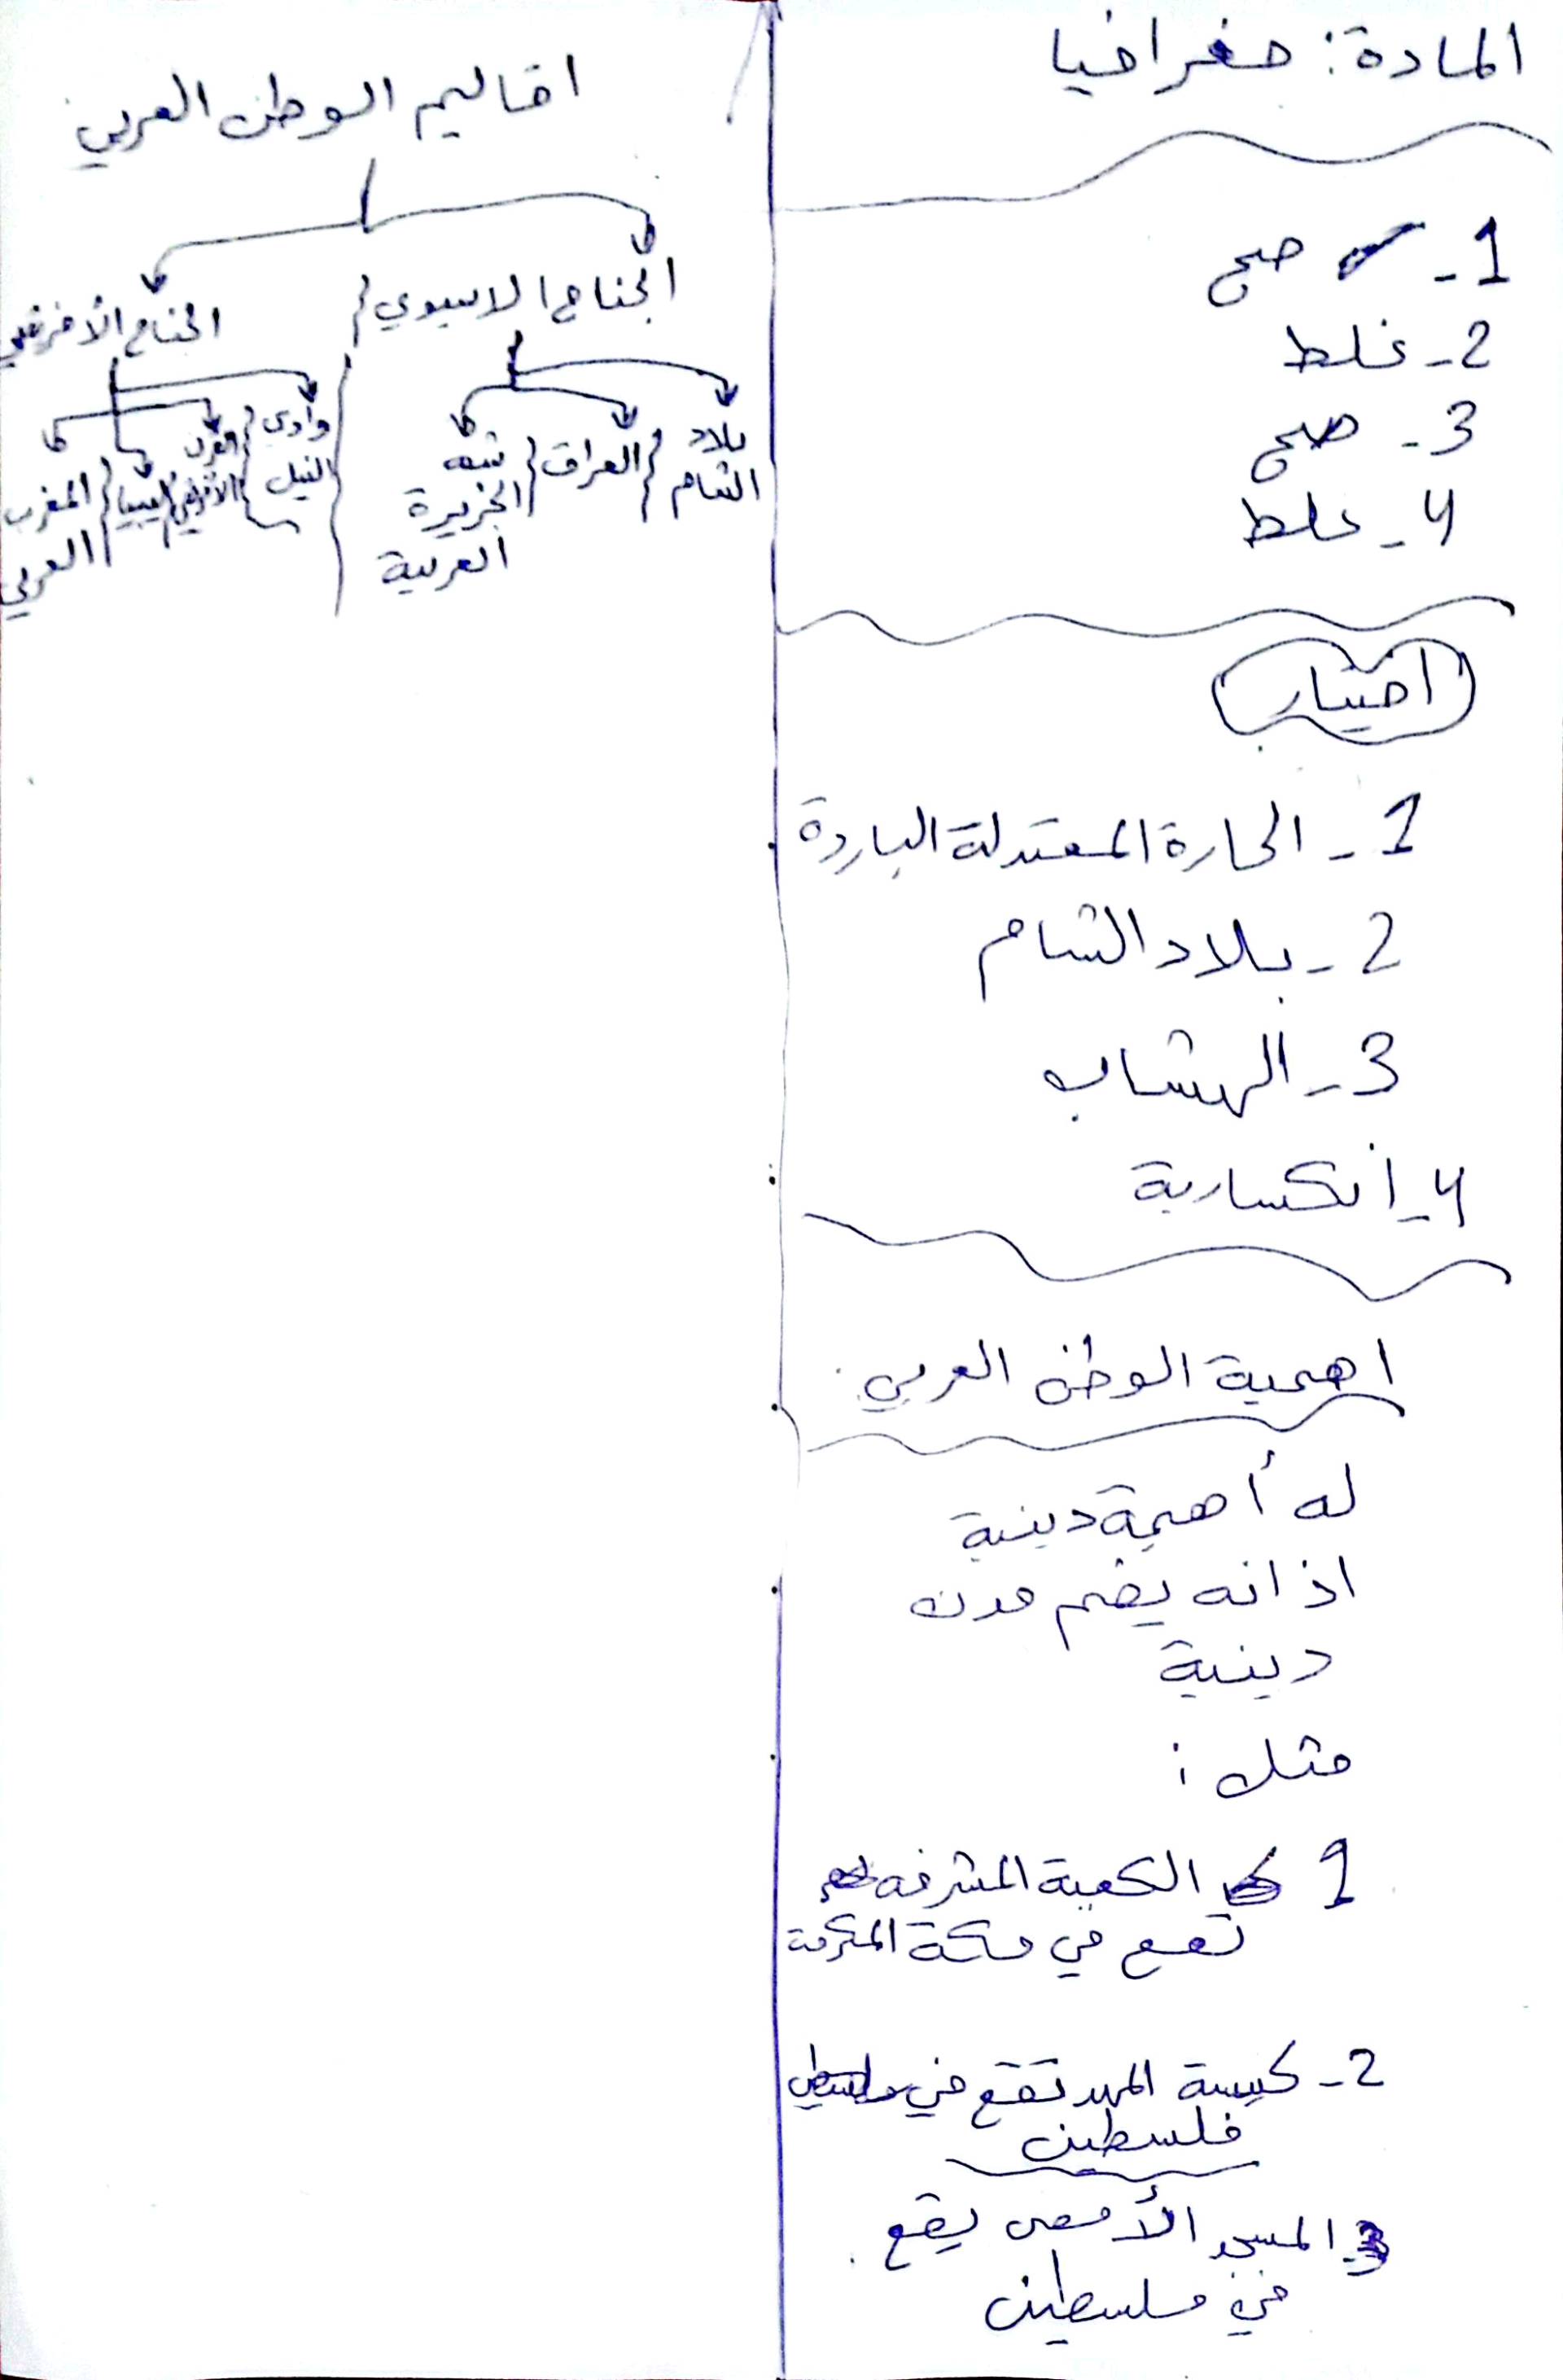 المادة: جغرافيا
1- صح
2- غلط
3- صح
4- غلط
اختيار
1- الحارة المعتدلة الباردة
2- بلاد الشام
3- الهشاب
4- انكسارية
اهمية الوطن العربي
له أهمية دينية
اذ انه يضم مدن
دينية
مثل:
1 الكعبة المشرفه
تقع في مكة المكرمة
2- كنيسة المهد تقع في
فلسطين
3- المسجد الأقصى يقع
في فلسطين
اقاليم الوطن العربي
الجناح الاسيوي
الجناح الأفريقي
بلاد
الشام
العراق
شبه
الجزيرة
العربية
وادي
النيل
القرن
الأفريقي
ليبيا
المغرب
العربي